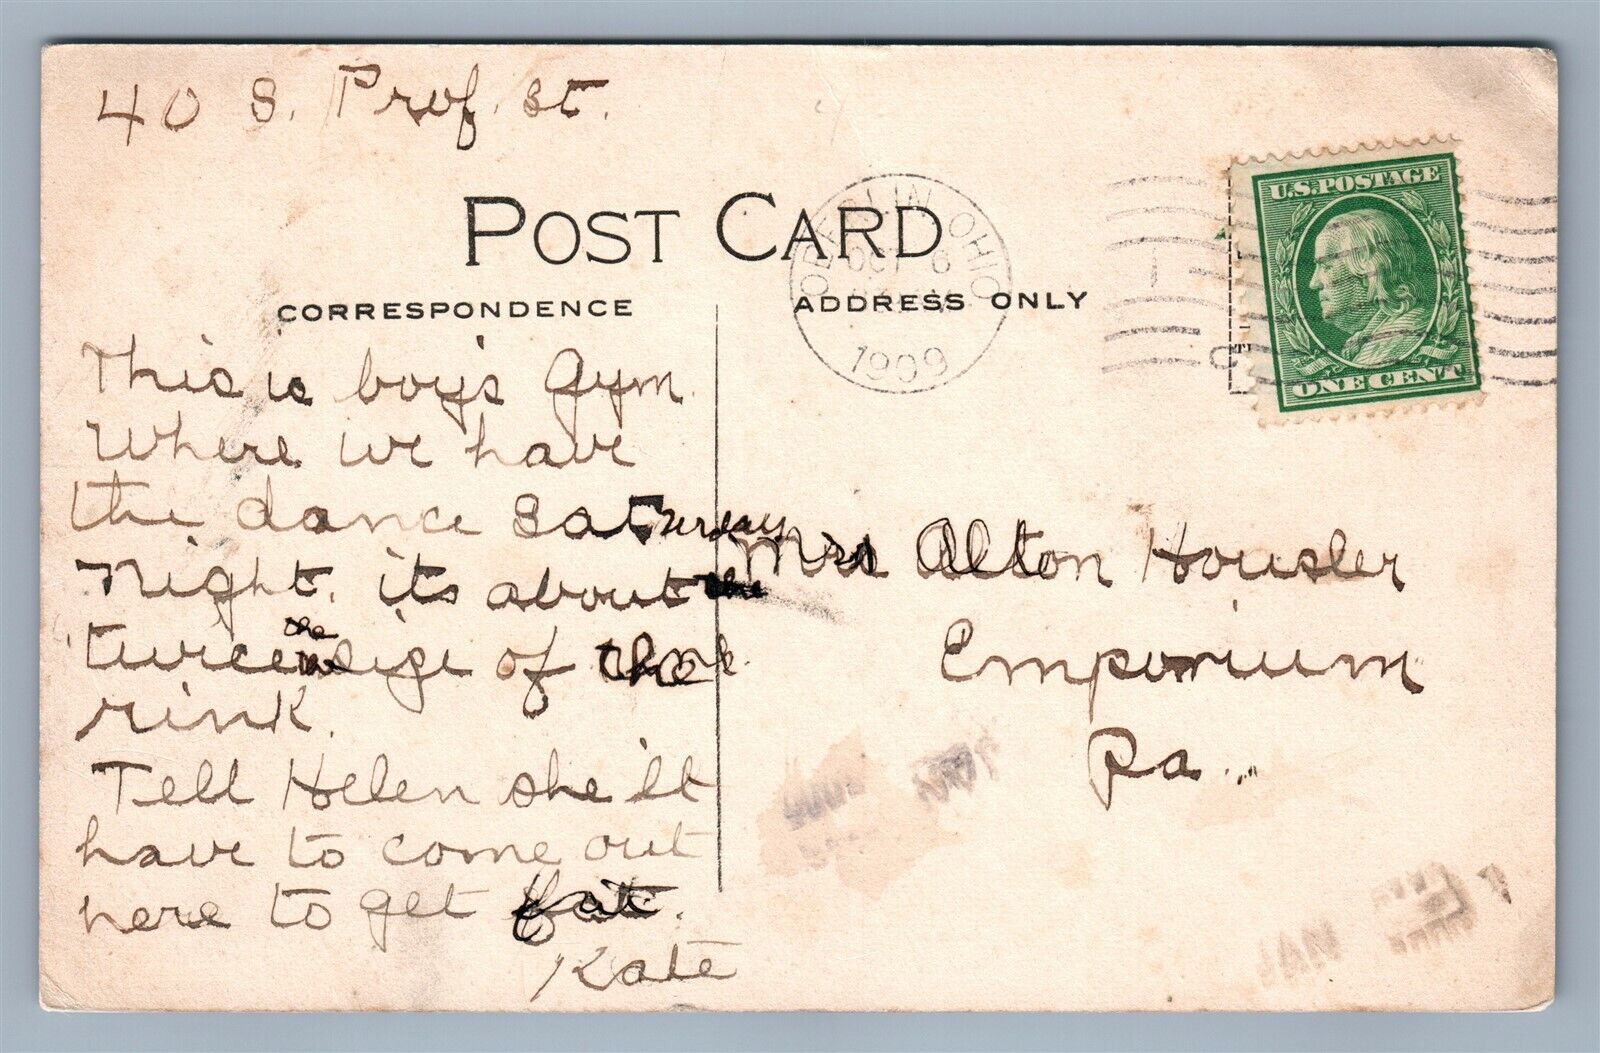 40 S. Prof. St.
POST CARD
CORRESPONDENCE
ADDRESS ONLY
OBERLIN OHIO
OCT 6
1909
U.S. POSTAGE
ONE CENT
This is boy's gym
Where we have
the dance Saturday
night. its about the
twice the size of the
rink.
Tell Helen she'll
have to come out
here to get fat.
Kate
Mrs Alton Housler
Emporium
Pa.